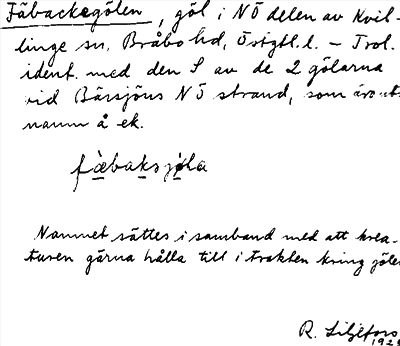 Fäbacksgölen, göl i NÖ delen av Kvil-
linge sn, Bråbo hd, Östgtl. l. – Trol.
ident. med den S av de 2 gölarna
vid Bärsjöns NÖ strand, som äro uts.
namn å ek.
fäbaksjøla
Namnet sättes i samband med att krea-
turen gärna hålla till i trakten kring gölen
R. Liljefors
1928